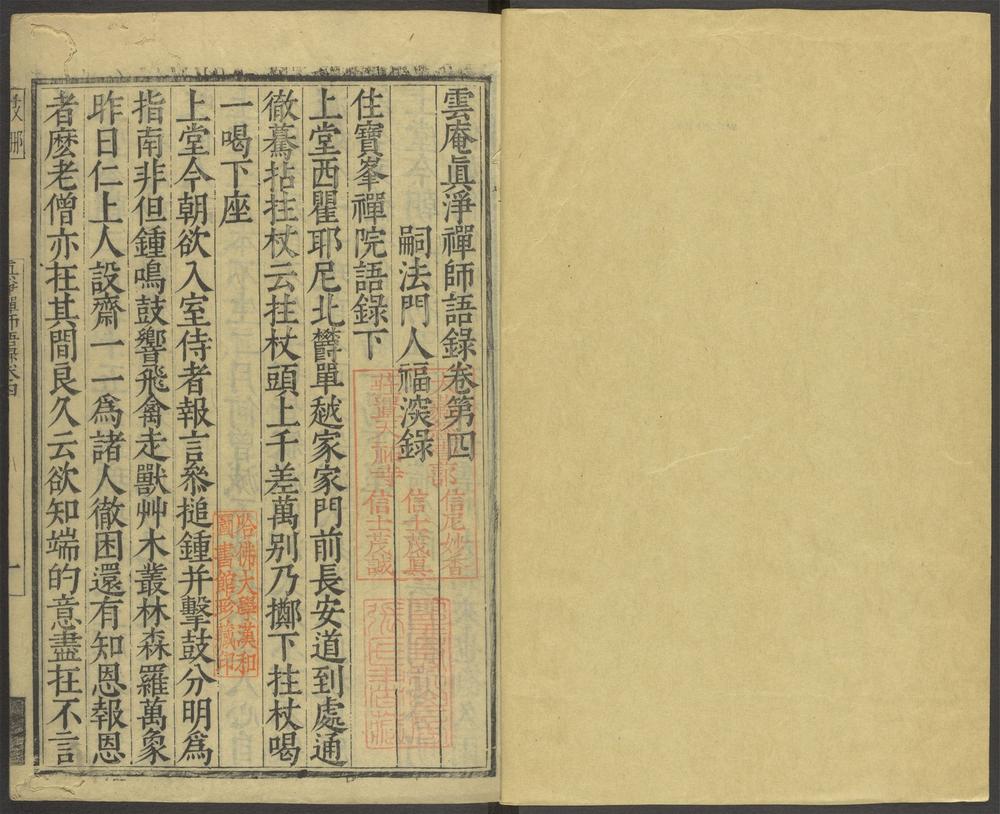 雲庵眞淨禪師語錄卷第四
嗣法門人福深錄
住寶峯禪院語錄下
上堂西瞿耶尼北欝單越家家門前長安道到處通
徹驀拈拄杖云拄杖頭上千差萬别乃擲下拄杖喝
一喝下座
上堂今朝欲入室侍者報言叅搥鍾并擊鼓分明爲
指南非但鍾鳴鼓響飛禽走獸艸木叢林森羅萬象
昨日仁上人設齋一一爲諸人徹困還有知恩報恩
者麽老僧亦在其間良久云欲知端的意盡在不言
信尼妙香
信士茂眞
信士茂誠
哈佛大學漢和
圖書館珍藏印